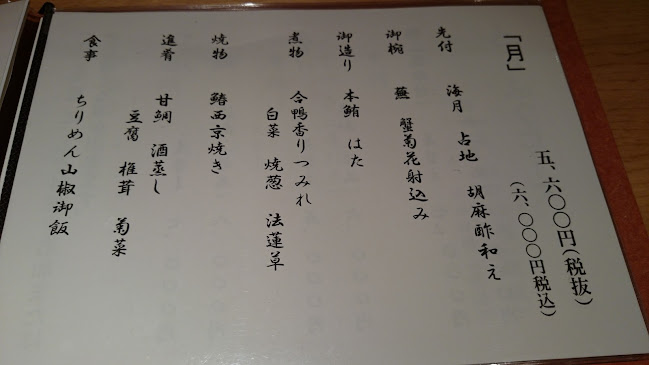 「月」
五、六〇〇円(税抜)
(六、〇〇〇円税込)
先付
海月 占地 胡麻酢和え
御椀
蕪 蟹菊花射込み
御造り
本鮪 はた
煮物
合鴨香りつみれ
白菜 焼葱 法蓮草
焼物
鰆西京焼き
進肴
甘鯛 酒蒸し
豆腐 椎茸 菊菜
食事
ちりめん山椒御飯